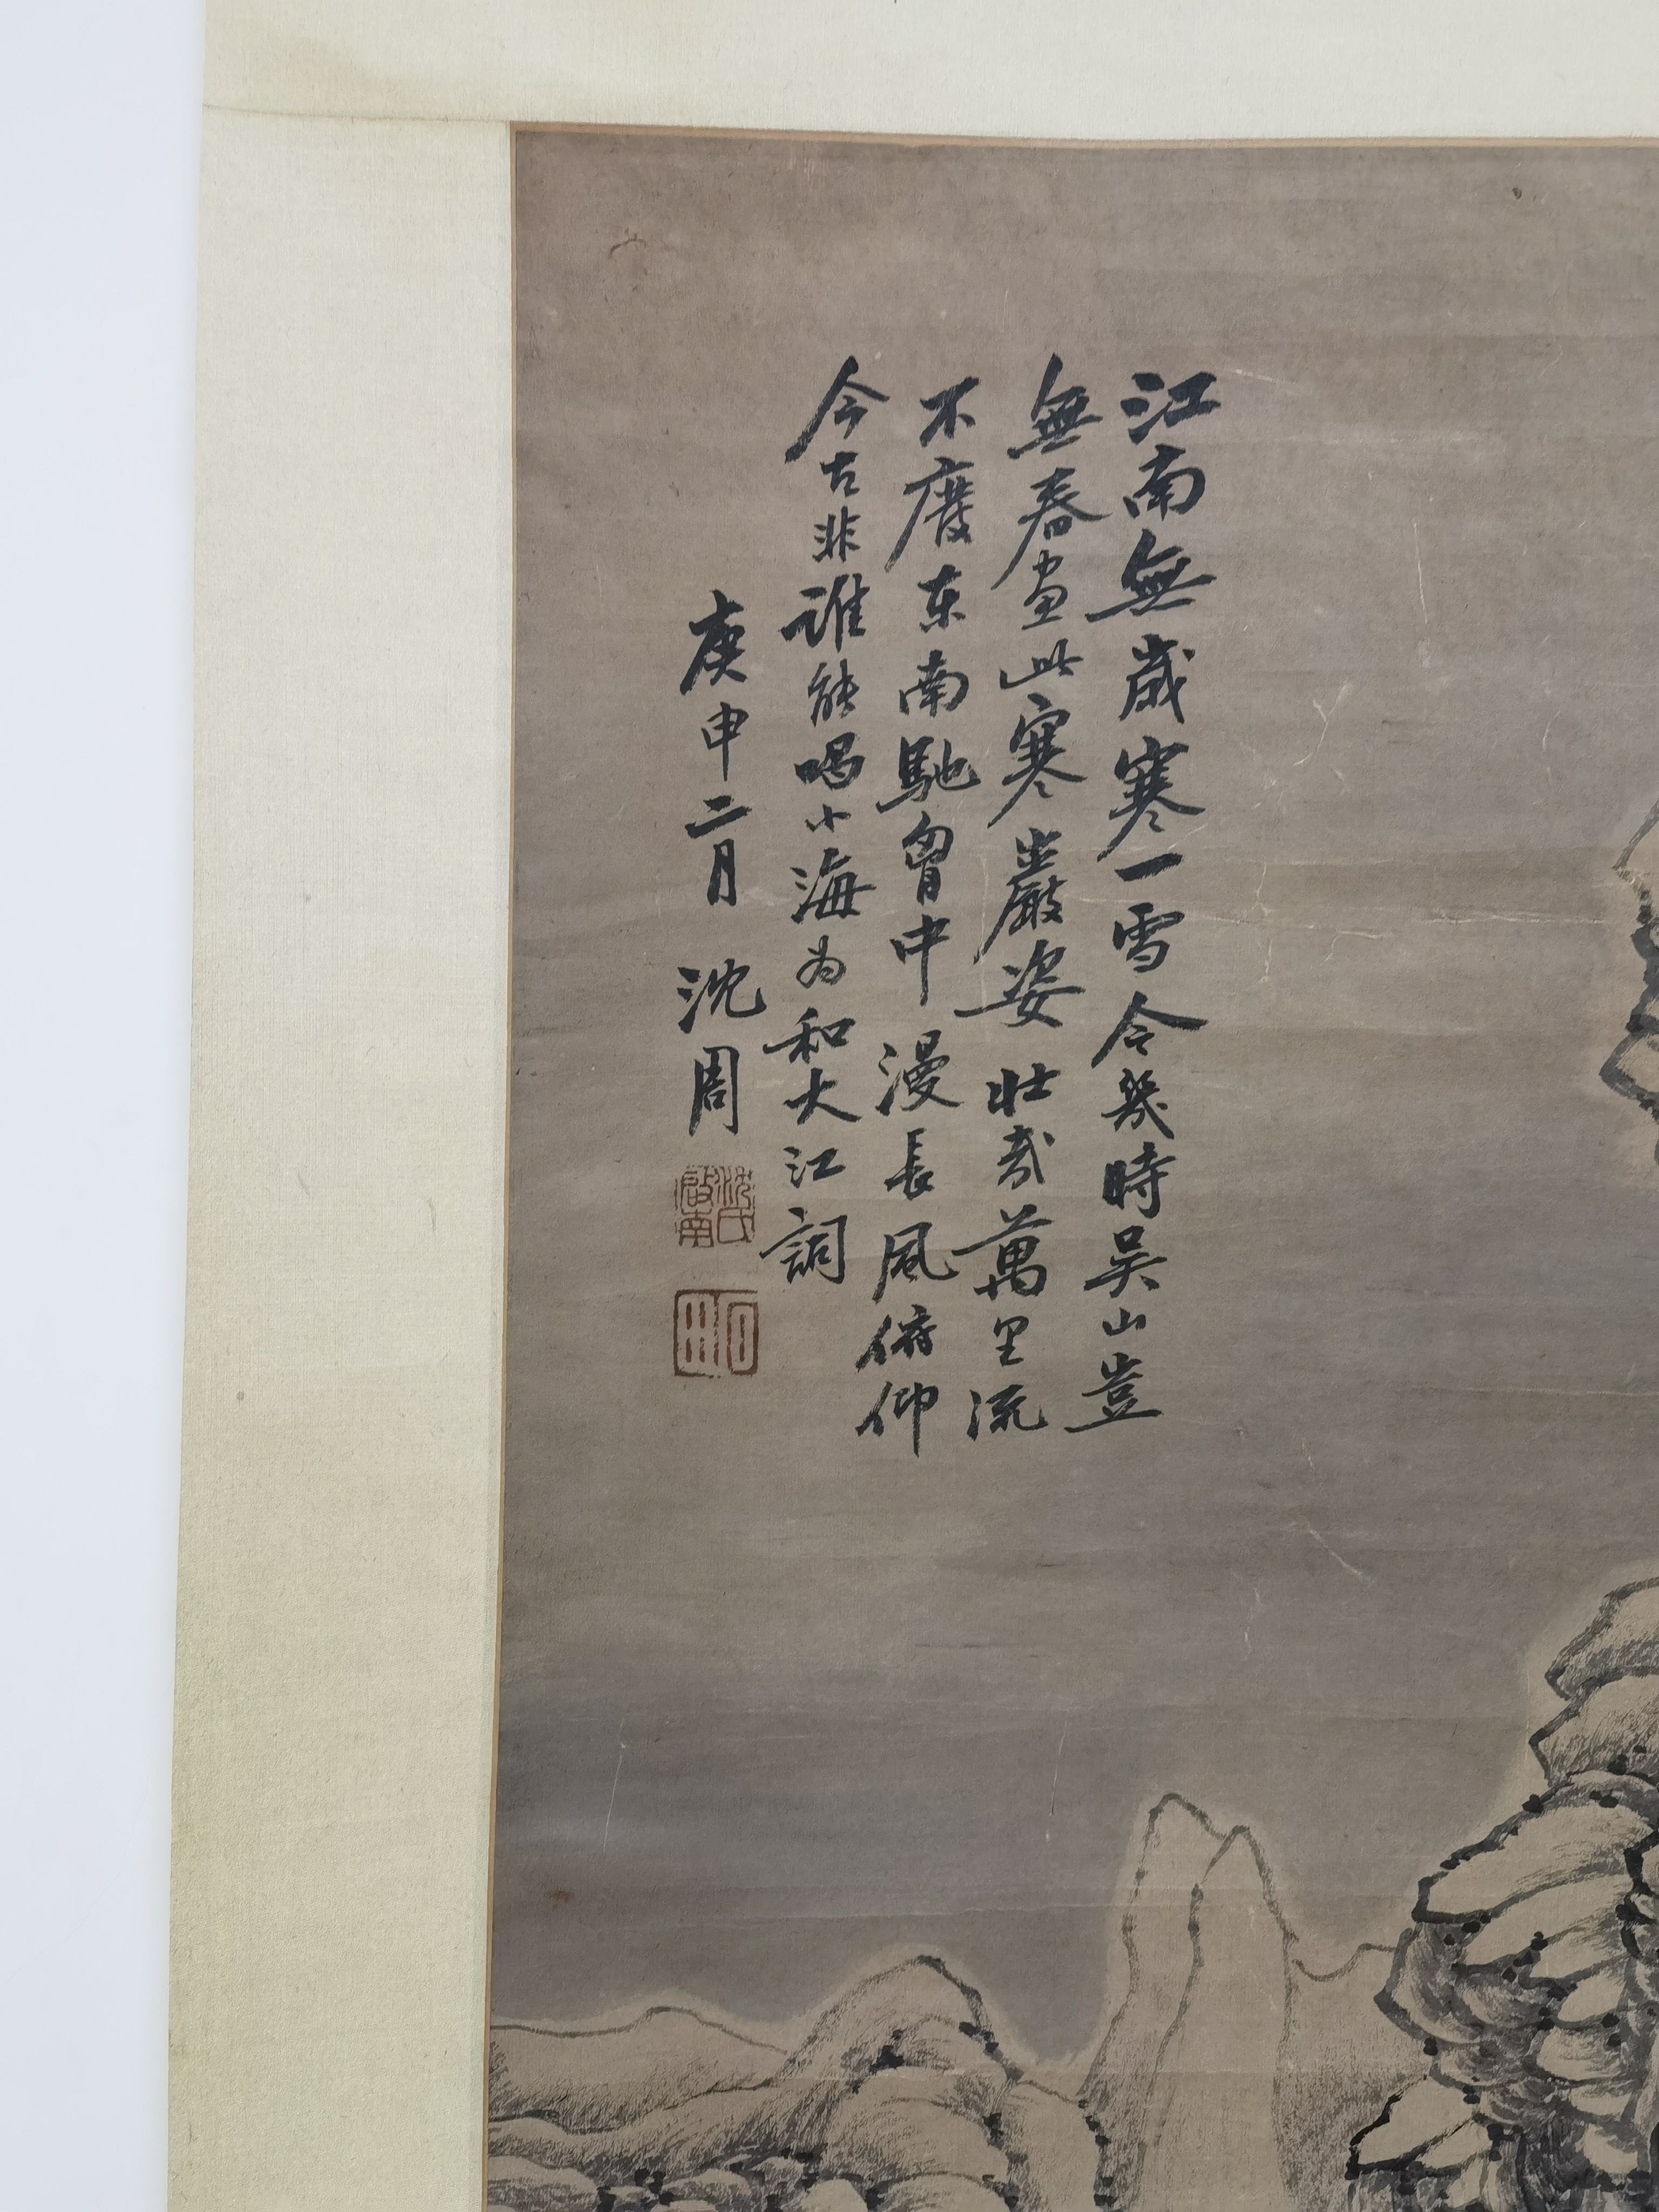 江南無歲寒一雪令幾時吳山豈
無春畫此寒巖姿壯哉萬里流
不廢东南馳胷中漫長風俯仰
今古非誰能唱小海为和大江詞
庚申二月 沈周
沈氏啟南
石田